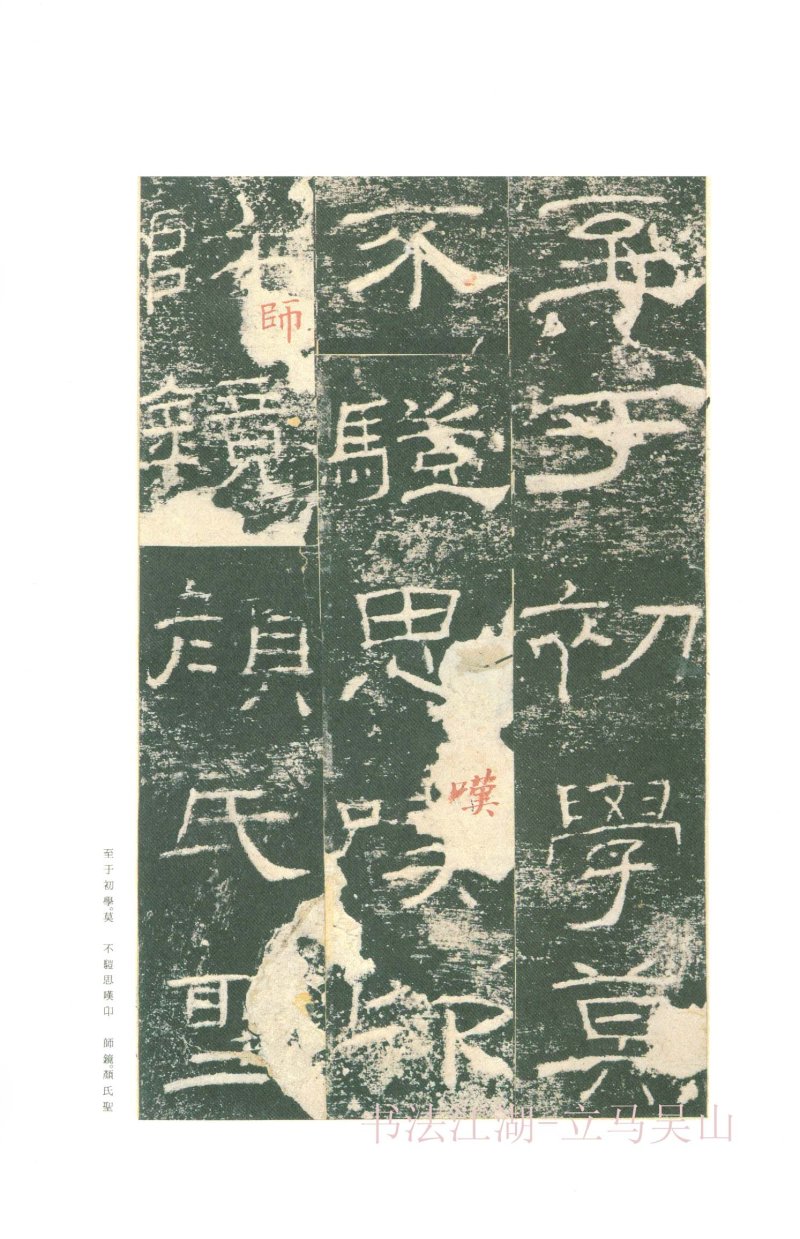 至于初學莫
不思嘆卬
師鏡顏氏聖
師
嘆
至于初學。莫 不思嘆卬 師鏡。顏氏聖
书法江湖-立马吴山